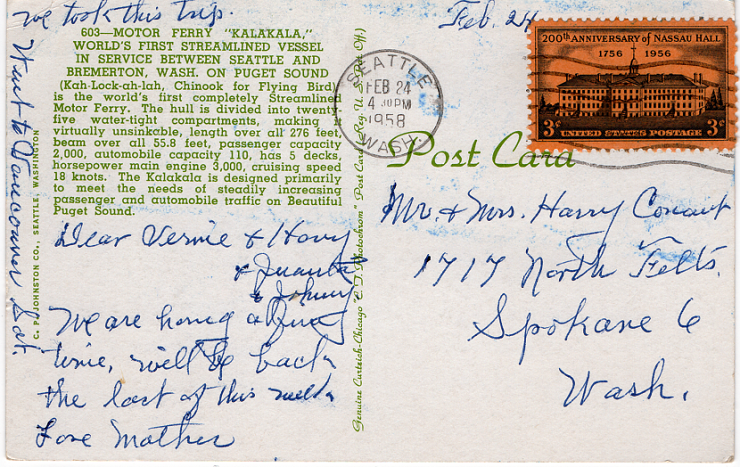 we took this trip.
Went to Vancouver Sat.
603—MOTOR FERRY "KALAKALA,"
WORLD'S FIRST STREAMLINED VESSEL
IN SERVICE BETWEEN SEATTLE AND
BREMERTON, WASH. ON PUGET SOUND
(Kah-Lock-ah-lah, Chinook for Flying Bird)
is the world's first completely Streamlined
Motor Ferry. The hull is divided into twenty-
five water-tight compartments, making it
virtually unsinkable, length over all 276 feet,
beam over all 55.8 feet, passenger capacity
2,000, automobile capacity 110, has 5 decks,
horsepower main engine 3,000, cruising speed
18 knots. The Kalakala is designed primarily
to meet the needs of steadily increasing
passenger and automobile traffic on Beautiful
Puget Sound.
C. P. JOHNSTON CO., SEATTLE, WASHINGTON
Dear Vernie & Harry
& Juanita
& Johnny
We are having a fine
time, will be back
the last of this week
Love Mother
Genuine Curteich-Chicago "C.T. Photochrom" Post Card (Reg. U. S. Pat. Off.)
Feb. 24
SEATTLE
FEB 24
4 30 PM
1958
WASH.
200th ANNIVERSARY of NASSAU HALL
1756 1956
3¢ UNITED STATES POSTAGE 3¢
Post Card
Mr. & Mrs. Harry Conant
1717 North Felts.
Spokane 6
Wash.